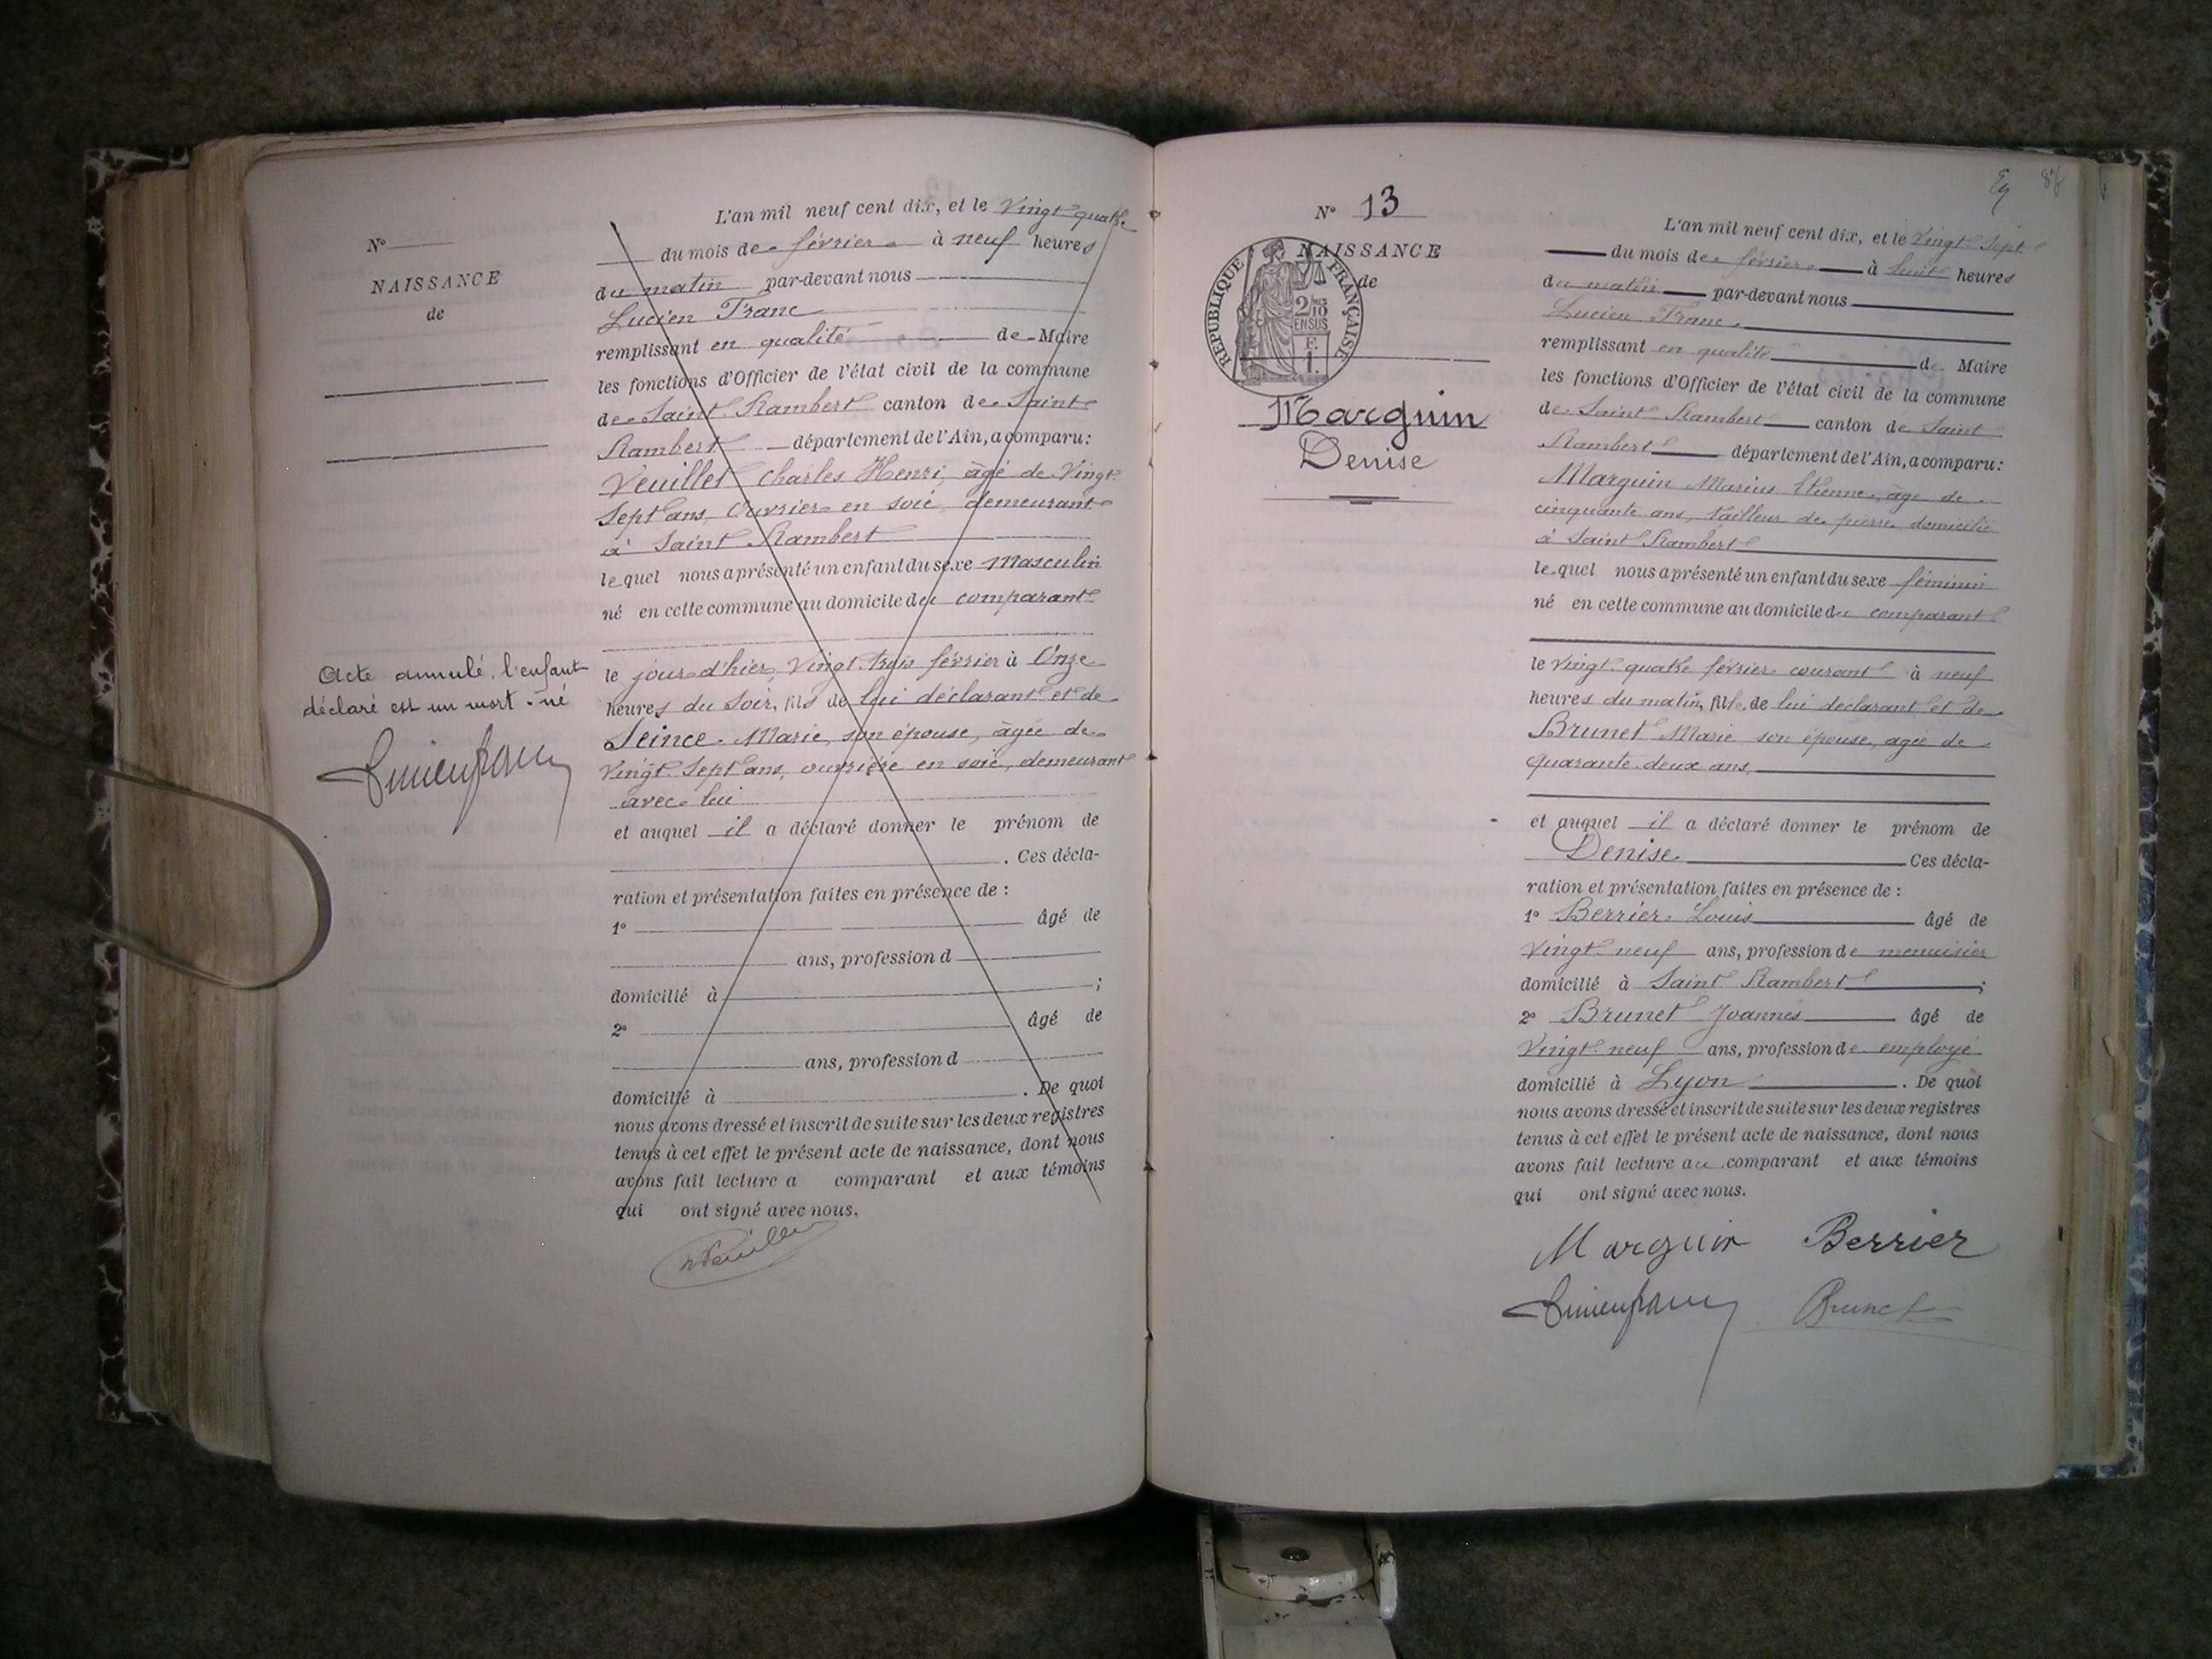 N°
NAISSANCE
de
Acte annulé, l'enfant
déclaré est un mort-né
L'an mil neuf cent dix, et le Vingt quatre
du mois de février à neuf heures
du matin par-devant nous
Lucien Franc
remplissant en qualité de Maire
les fonctions d'Officier de l'état civil de la commune
de Saint Rambert canton de Saint
Rambert département de l'Ain, a comparu:
Veuillet Charles Henri, âgé de Vingt
Sept ans, Ouvrier en soie, demeurant
à Saint Rambert
le quel nous a présenté un enfant du sexe Masculin
né en cette commune au domicile du comparant
le jour d'hier, Vingt trois février à Onze
heures du Soir, fils de lui déclarant et de
Seince Marie, son épouse, âgée de
Vingt Sept ans, ouvrière en soie, demeurant
avec lui
et auquel il a déclaré donner le prénom de
. Ces décla-
ration et présentation faites en présence de :
1° âgé de
ans, profession d
domicilié à ;
2° âgé de
ans, profession d
domicilié à . De quoi
nous avons dressé et inscrit de suite sur les deux registres
tenus à cet effet le présent acte de naissance, dont nous
avons fait lecture a comparant et aux témoins
qui ont signé avec nous.
N° 13
NAISSANCE
de
RÉPUBLIQUE FRANÇAISE
2/10
EN SUS
F.
1.
Marguin
Denise
L'an mil neuf cent dix, et le Vingt Sept
du mois de février à huit heures
du matin par-devant nous
Lucien Franc
remplissant en qualité de Maire
les fonctions d'Officier de l'état civil de la commune
de Saint Rambert canton de Saint
Rambert département de l'Ain, a comparu:
Marguin Marius Etienne, âgé de
cinquante ans, tailleur de pierre, domicilié
à Saint Rambert
le quel nous a présenté un enfant du sexe féminin
né en cette commune au domicile du comparant
le Vingt quatre février courant à neuf
heures du matin, fille de lui déclarant et de
Brunet Marie son épouse, âgée de
quarante deux ans,
et auquel il a déclaré donner le prénom de
Denise. Ces décla-
ration et présentation faites en présence de :
1° Berrier Louis âgé de
Vingt neuf ans, profession de menuisier
domicilié à Saint Rambert ;
2° Brunet Joannès âgé de
Vingt neuf ans, profession de employé
domicilié à Lyon . De quoi
nous avons dressé et inscrit de suite sur les deux registres
tenus à cet effet le présent acte de naissance, dont nous
avons fait lecture au comparant et aux témoins
qui ont signé avec nous.
Marguin Berrier
Lucien Franc Brunet